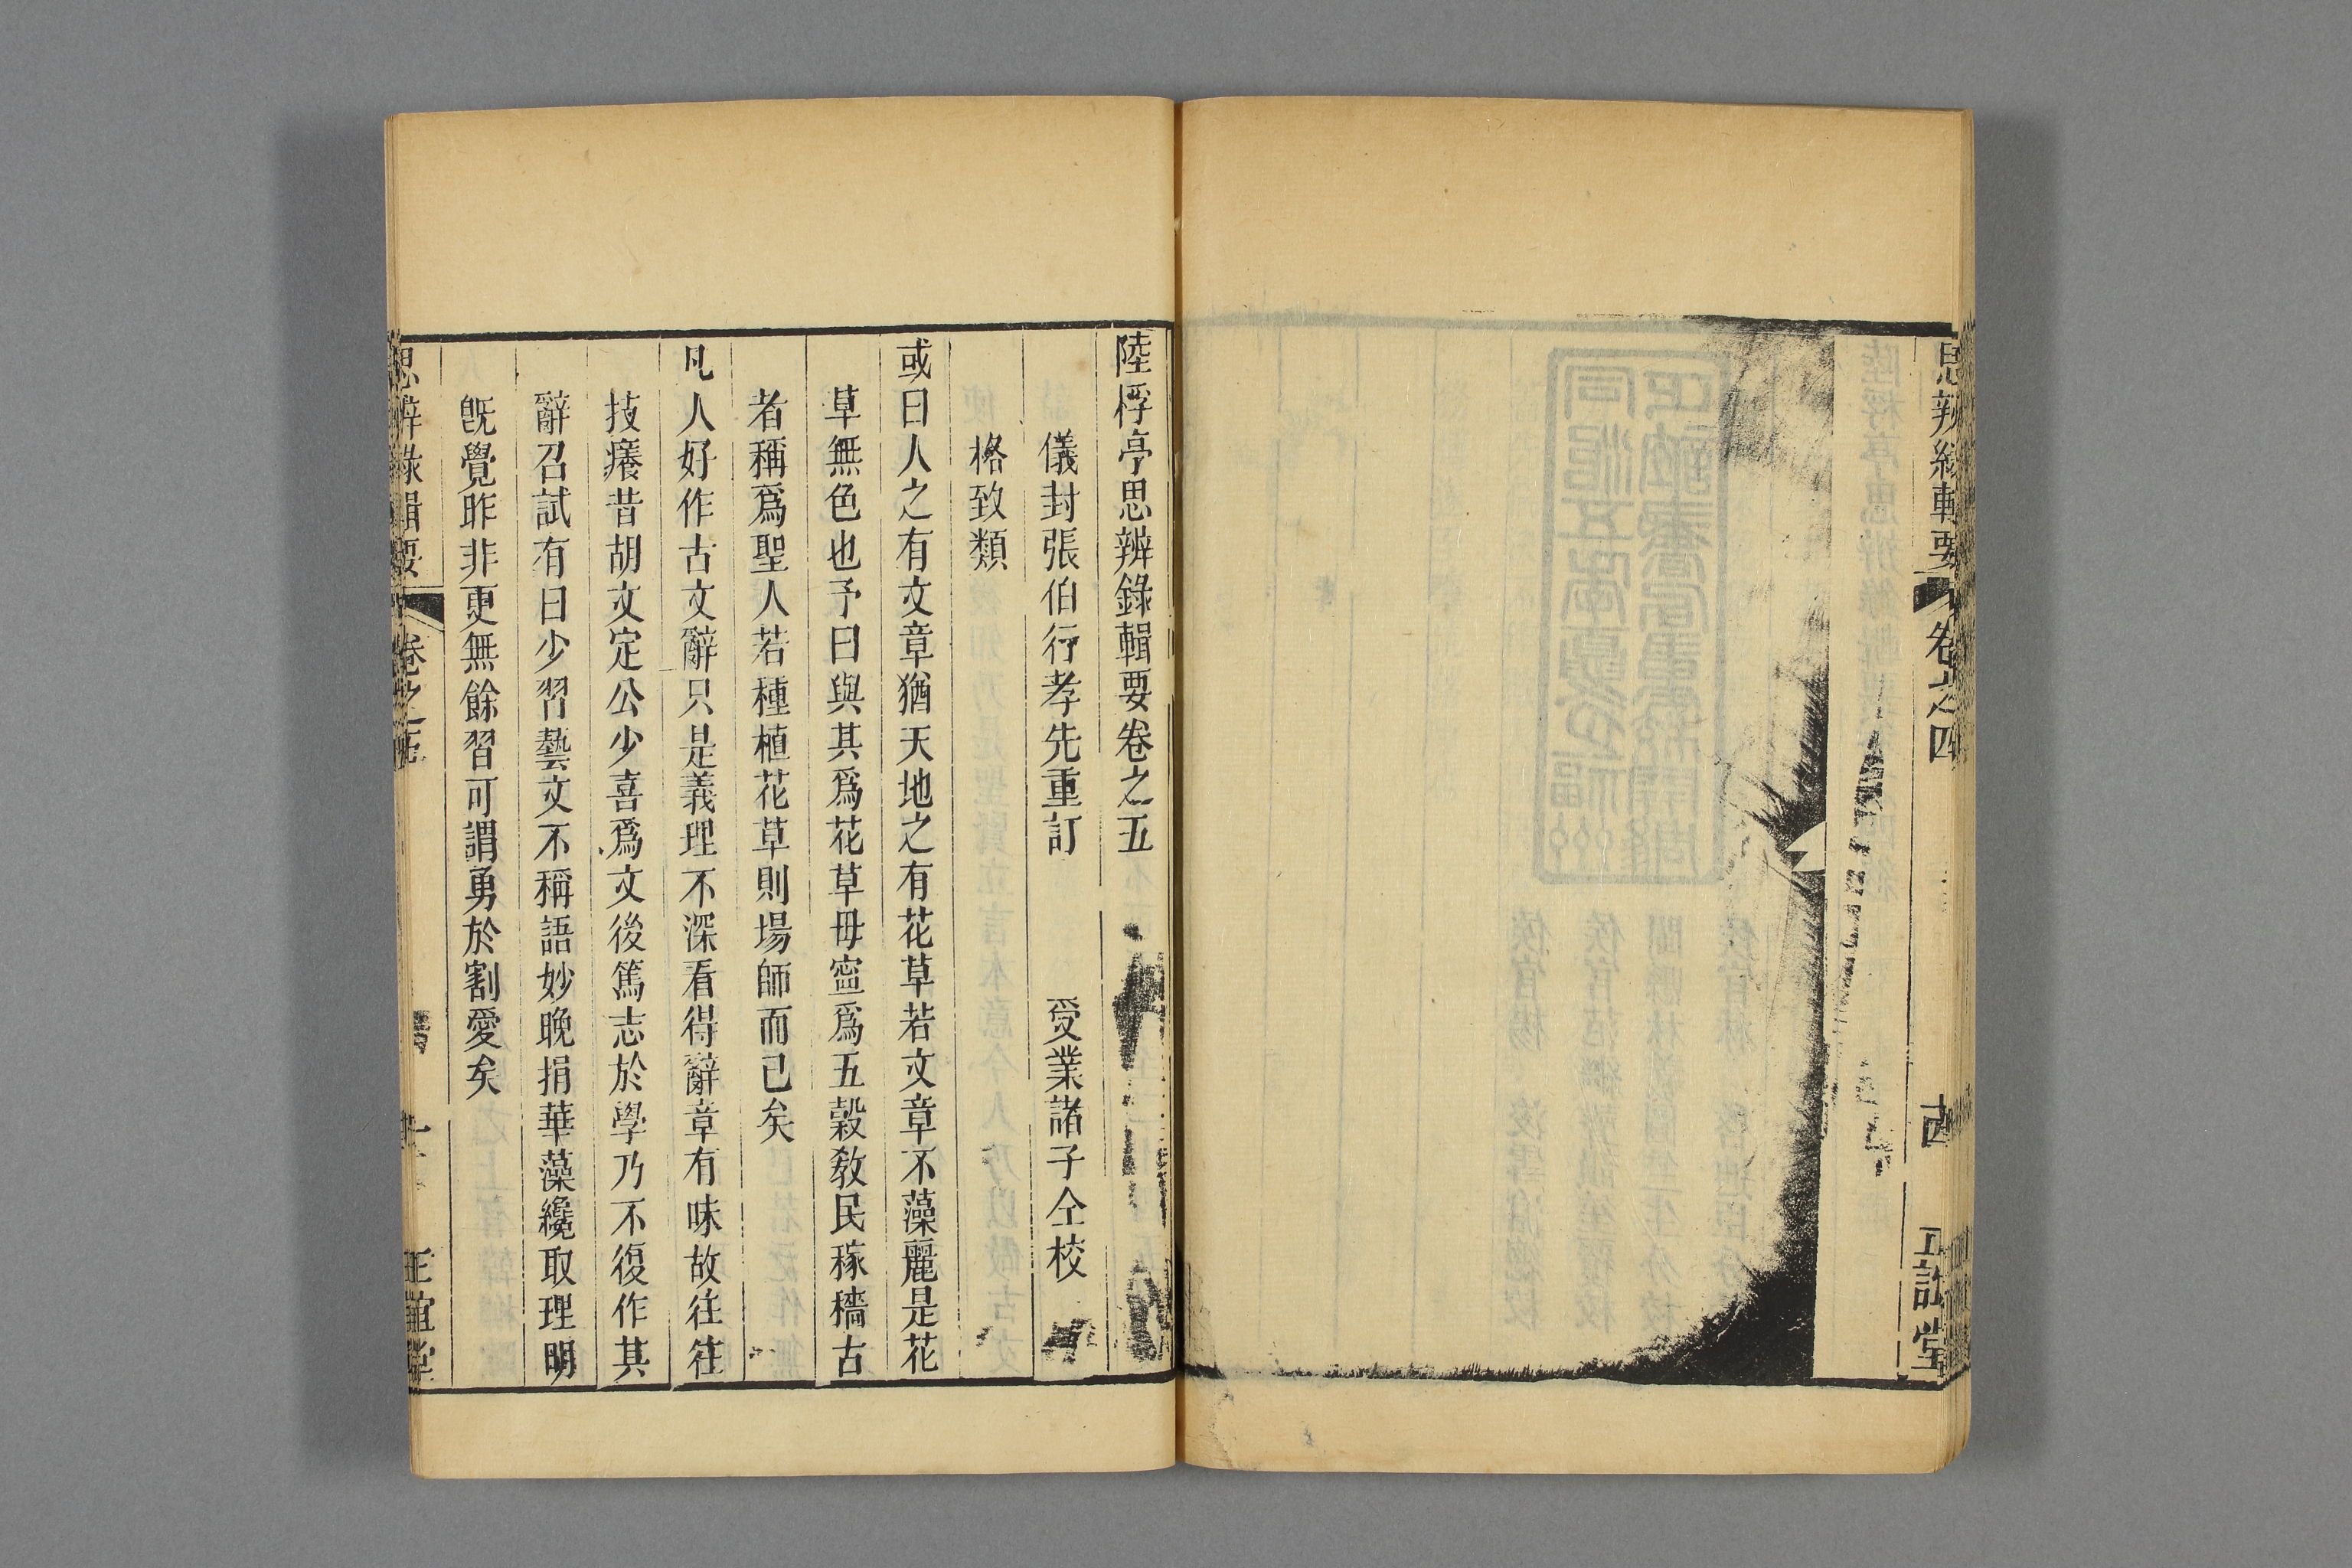 思辨錄輯要
卷之四
正誼堂
陸桴亭思辨錄輯要卷之五
儀封張伯行孝先重訂　受業諸子仝校
格致類
或曰人之有文章猶天地之有花草若文章不藻麗是花
草無色也予曰與其爲花草毋寍爲五穀敎民稼穡古
者稱爲聖人若種植花草則場師而已矣
凡人好作古文辭只是義理不深看得辭章有味故往往
技癢昔胡文定公少喜爲文後篤志於學乃不復作其
辭召試有曰少習藝文不稱語妙晚捐華藻纔取理明
旣覺昨非更無餘習可謂勇於割愛矣
思辨錄輯要
卷之五
正誼堂